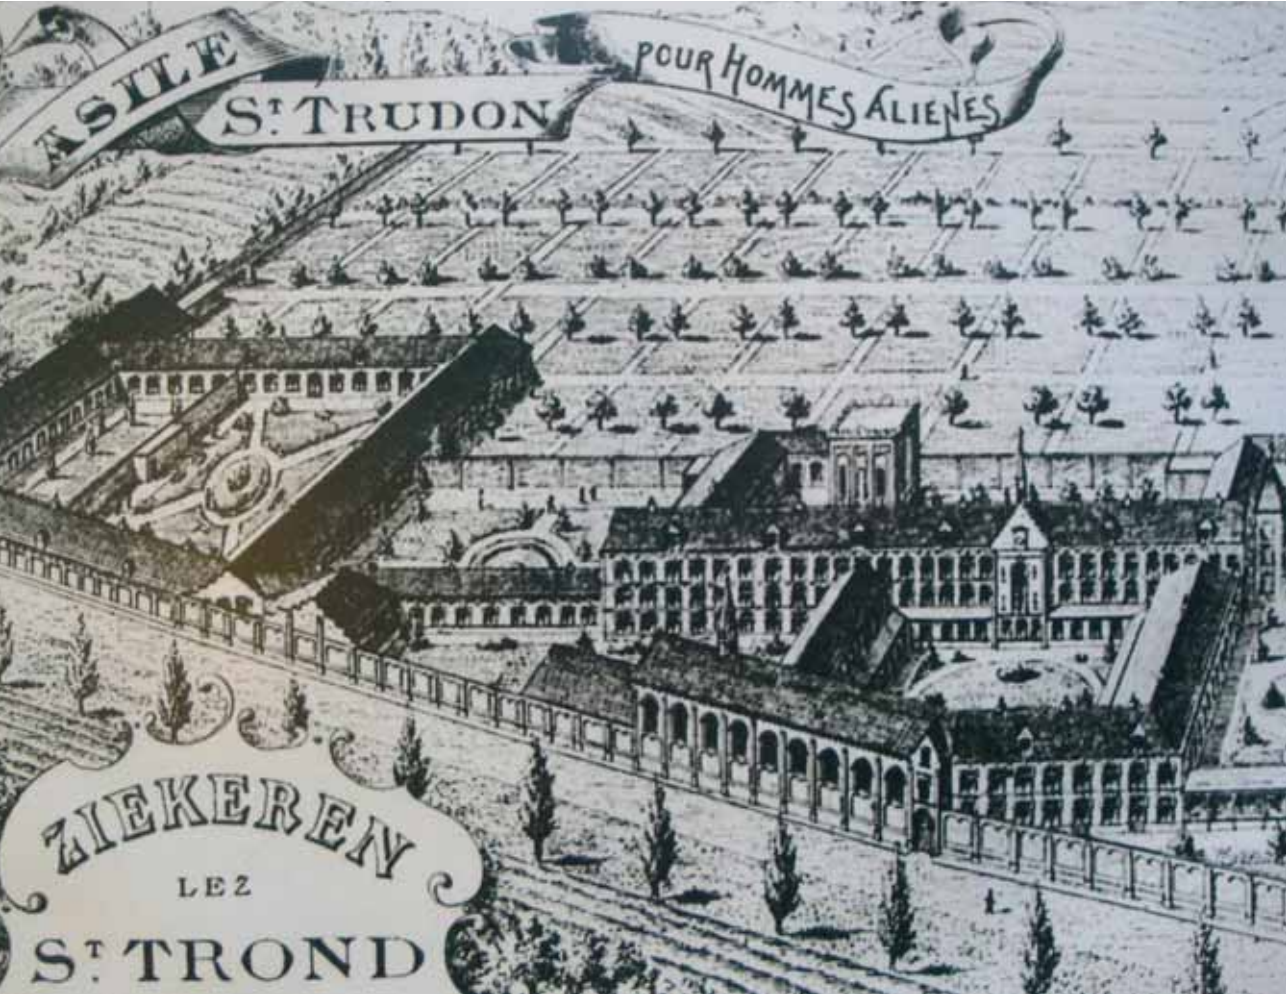 ASILE
ST. TRUDON
POUR HOMMES ALIENES
ZIEKEREN
LEZ
ST. TROND